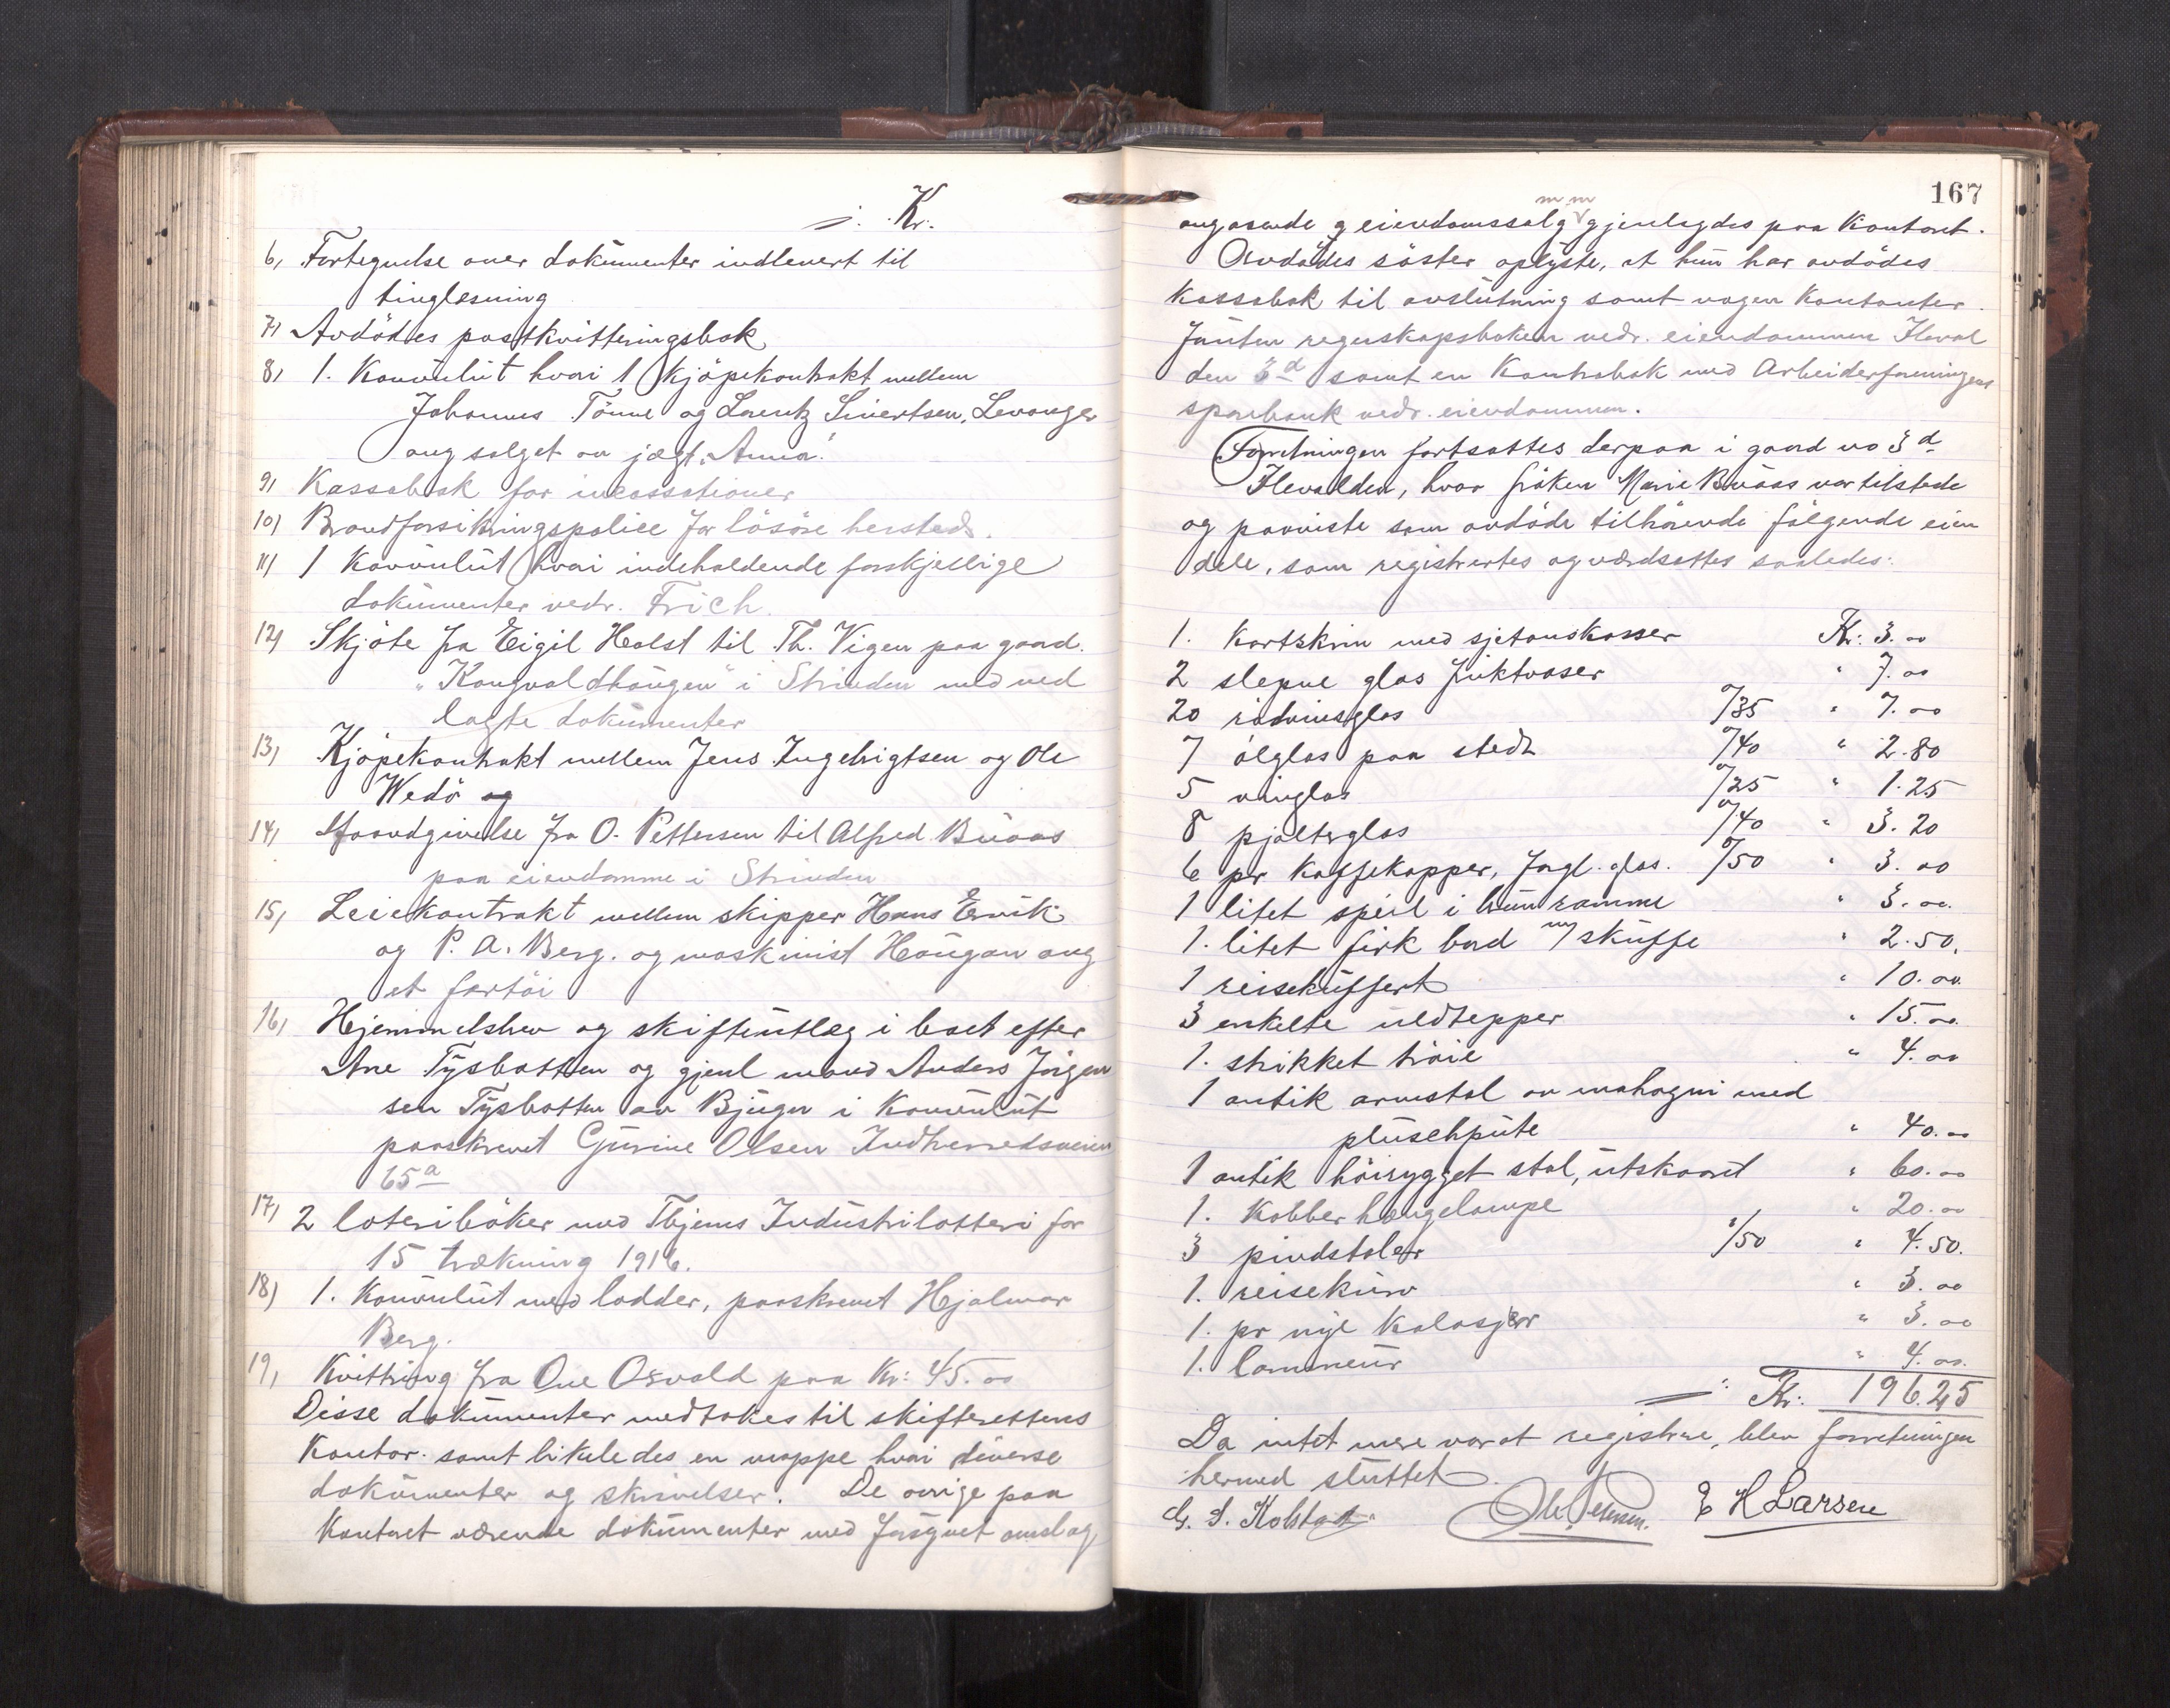 ÷ Kr.
6, Fortegnelse over dokumenter indlevert til
tinglæsning
7, Avdødes postkvitteringsbok
8, 1. Konvulut hvori 1 kjøpekontrakt mellem
Johannes Tønne og Lorentz Sivertsen, Levanger
ang salget av jægt „Anna".
9, Kassabok for incassationer
10, Brandforsikringspolice for løsøre hersteds.
11, 1 Konvulut hvori indeholdende forskjellige
dokumenter vedr. Frich.
12, Skjøte fra Eigil Holst til Th. Vigen paa gaard.
„Kongvoldhaugen" i Strinden med ved
lagte dokumenter
13, Kjøpekontrakt mellem Jens Ingebrigtsen og Ole
Wedø og
14, Haandgivelse fra O. Pettersen til Alfred Buaas
paa eiendomme i Strinden
15, Leiekontrakt mellem skipper Hans Ervik
og P. A. Berg. og maskinist Haugan ang
et fartøi
16, Hjemmelsbrev og skifteutlæg i boet efter
Ane Tysbotten og gjenl mand Anders Jørgen
sen Tysbotten av Bjugn i Konvulut
paaskrevet Gurine Olsen Indherredsveien
65a
17, 2 loteribøker med Thjems Industrilotteri for
15 trækning 1916.
18, 1. Konvulut med lodder, paaskrevet Hjalmar
Berg.
19, Kvittring fra Ove Osvold paa Kr: 45.00
Disse dokumenter medtokes til skifterettens
Kontor. samt likeledes en mappe hvori diverse
dokumenter og skrivelser. De øvrige paa
Kontoret værende dokumenter med farvet omslag
167
m m
angaaende eiendomssalg gjenlagdes paa Kontoret.
Avdødes søster oplyste, at hun har avdødes
Kassabok til avslutning samt nogen Kontanter.
regnskapsboken vedr. eiendommen Ilevol
den 3d samt en Kontrabok med Arbeiderforeningens
sparebank vedr. eiendommen.
Forretningen fortsattes derpaa i gaard no 3d
Ilevolden, hvor frøken Marie Buaas var tilstede
og paaviste som avdøde tilhørende følgende eien
dele, som registrertes og værdsattes saaledes:
1. Kortskrin med sjetonskasser Kr: 3.00
2 slepne glas fruktvaser " 7.00
20 rødvinsglas à/35 " 7.00
7 ølglas paa stedt à/40 " 2.80
5 vinglas à/25 " 1.25
8 pjolterglas à/40 " 3.20
6 pr Kaffekopper, fugl. fas. à/50 " 3.00
1 litet speil i brun ramme " 3.00
1. litet firk bord m/ skuffe " 2.50.
1 reisekuffert " 10.00
3 enkelte uldtepper " 15.00
1. strikket trøie " 4.00
1 antik armstol av mahogni med
pluschpute " 40.00
1 antik høirygget stol, utskaaret " 60.00
1. Kobber hængelampe " 20.00
3 pindstoler 1/50 " 4.50.
1. reisekurv " 3.00
1. pr nye Kalosjer " 3.00
1. lommeur " 4.00.
÷ Kr: 196.25
Da intet mere var at registrere, blev forretningen
hermed sluttet.
G. S. Kolstad Ole Petersen. E H Larsen